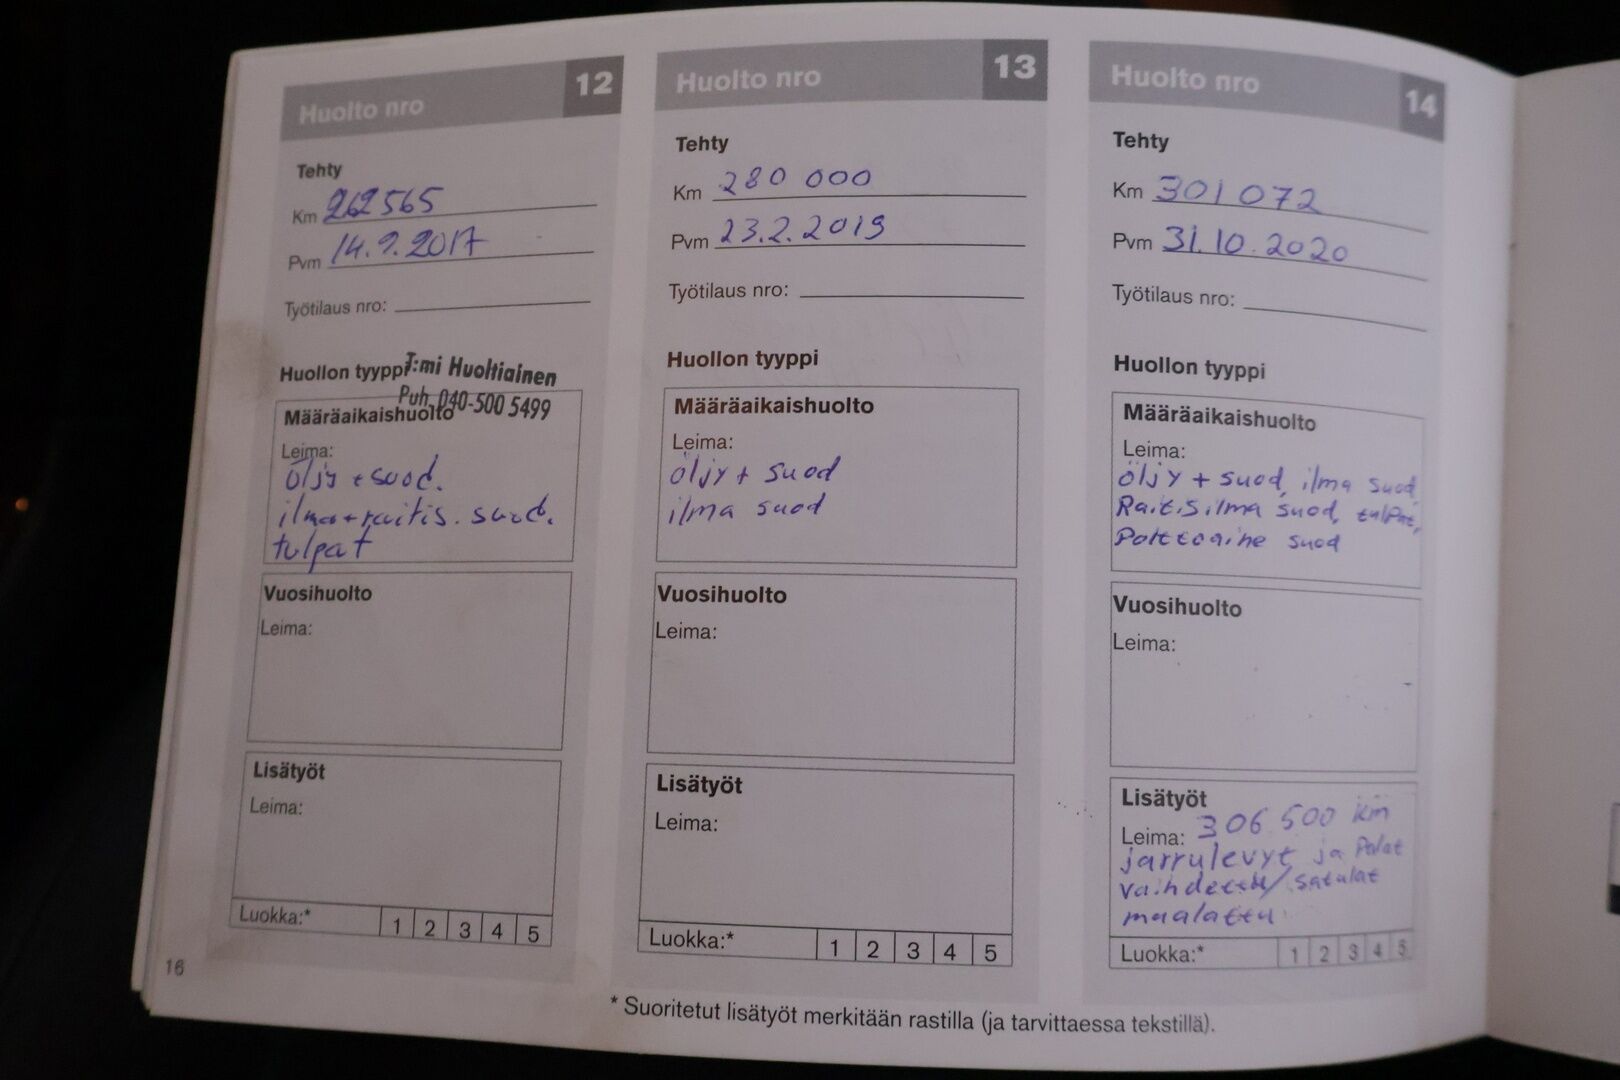 Huolto nro 12
Tehty
Km 262565
Pvm 14.9.2017
Työtilaus nro:
Huollon tyyppi
T:mi Huoltiainen
Puh. 040-500 5499
Määräaikaishuolto
Leima:
öljy + suod.
ilma + raitis. suod.
tulpat
Vuosihuolto
Leima:
Lisätyöt
Leima:
Luokka:* 1 2 3 4 5
16
Huolto nro 13
Tehty
Km 280 000
Pvm 23.2.2019
Työtilaus nro:
Huollon tyyppi
Määräaikaishuolto
Leima:
öljy + suod
ilma suod
Vuosihuolto
Leima:
Lisätyöt
Leima:
Luokka:* 1 2 3 4 5
Huolto nro 14
Tehty
Km 301 072
Pvm 31.10.2020
Työtilaus nro:
Huollon tyyppi
Määräaikaishuolto
Leima:
öljy + suod, ilma suod,
Raitisilma suod, tulpat,
Polttoaine suod
Vuosihuolto
Leima:
Lisätyöt
Leima: 306 500 km
jarrulevyt ja Palat
vaihdettu/satulat
maalattu
Luokka:* 1 2 3 4 5
* Suoritetut lisätyöt merkitään rastilla (ja tarvittaessa tekstillä).